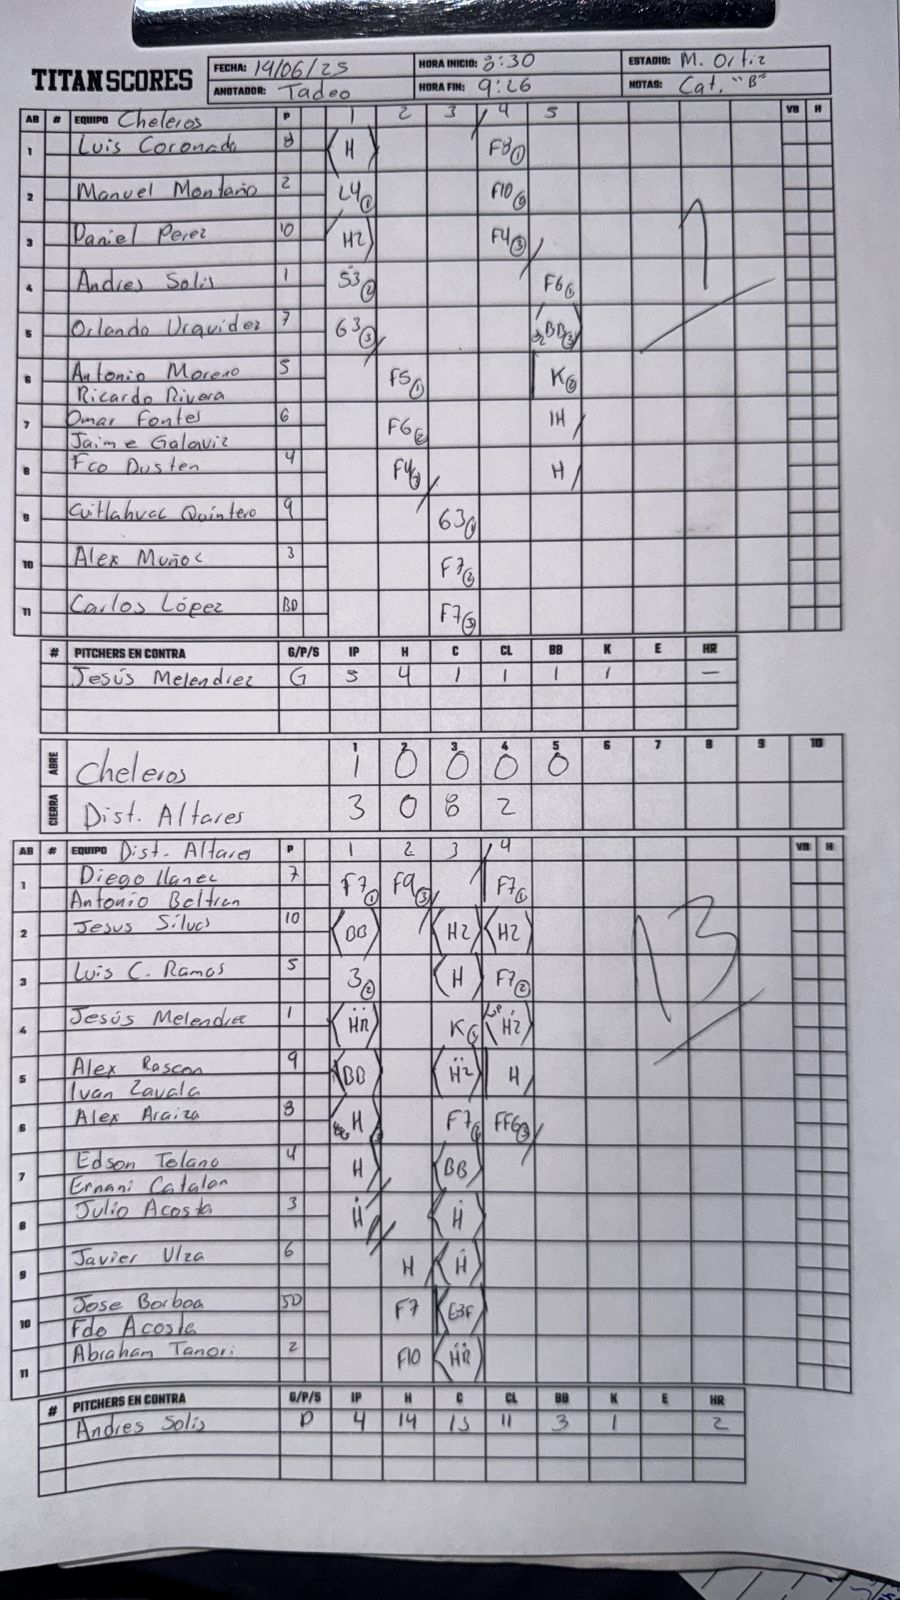 TITAN SCORES
FECHA: 19/06/25 HORA INICIO: 8:30 ESTADIO: M. Ortiz
ANOTADOR: Tadeo HORA FIN: 9:26 NOTAS: Cat. "B"
AB # EQUIPO Cheleros P 1 2 3 4 5 VB H
1 Luis Coronado 8 H F8①
2 Manuel Montaño 2 L4① F10②
3 Daniel Perez 10 H2 F4③
4 Andres Solis 1 53② F6①
5 Orlando Urquidez 7 63③ BB
6 Antonio Moreno 5 F5① K②
Ricardo Rivera
7 Omar Fontes 6 F6② IH
Jaime Galaviz
8 Fco Dusten 4 F4③ H
9 Cuitlahuac Quintero 9 63①
10 Alex Muñoz 3 F7②
11 Carlos López BD F7③
1
# PITCHERS EN CONTRA G/P/S IP H C CL BB K E HR
Jesús Melendrez G 5 4 1 1 1 1 —
1 2 3 4 5 6 7 8 9 10
ABRE Cheleros 1 0 0 0 0
CIERRA Dist. Altares 3 0 8 2
AB # EQUIPO Dist. Altares P 1 2 3 4 VB H
1 Diego Llanez 7 F7① F9③ F7①
Antonio Beltran
2 Jesus Silvas 10 BB H2 H2
3 Luis C. Ramos 5 3② H F7②
4 Jesús Melendrez 1 HR K① H2
5 Alex Rascon 9 BB H2 H
Ivan Zavala
6 Alex Araiza 8 H F7② FF6③
7 Edson Tolano 4 H BB
Ernani Catalan
8 Julio Acosta 3 H H
9 Javier Ulza 6 H H
10 Jose Borboa 5D F7 E3F
Fdo Acosta
11 Abraham Tanori 2 F10 HR
13
# PITCHERS EN CONTRA G/P/S IP H C CL BB K E HR
Andres Solis P 4 14 13 11 3 1 2